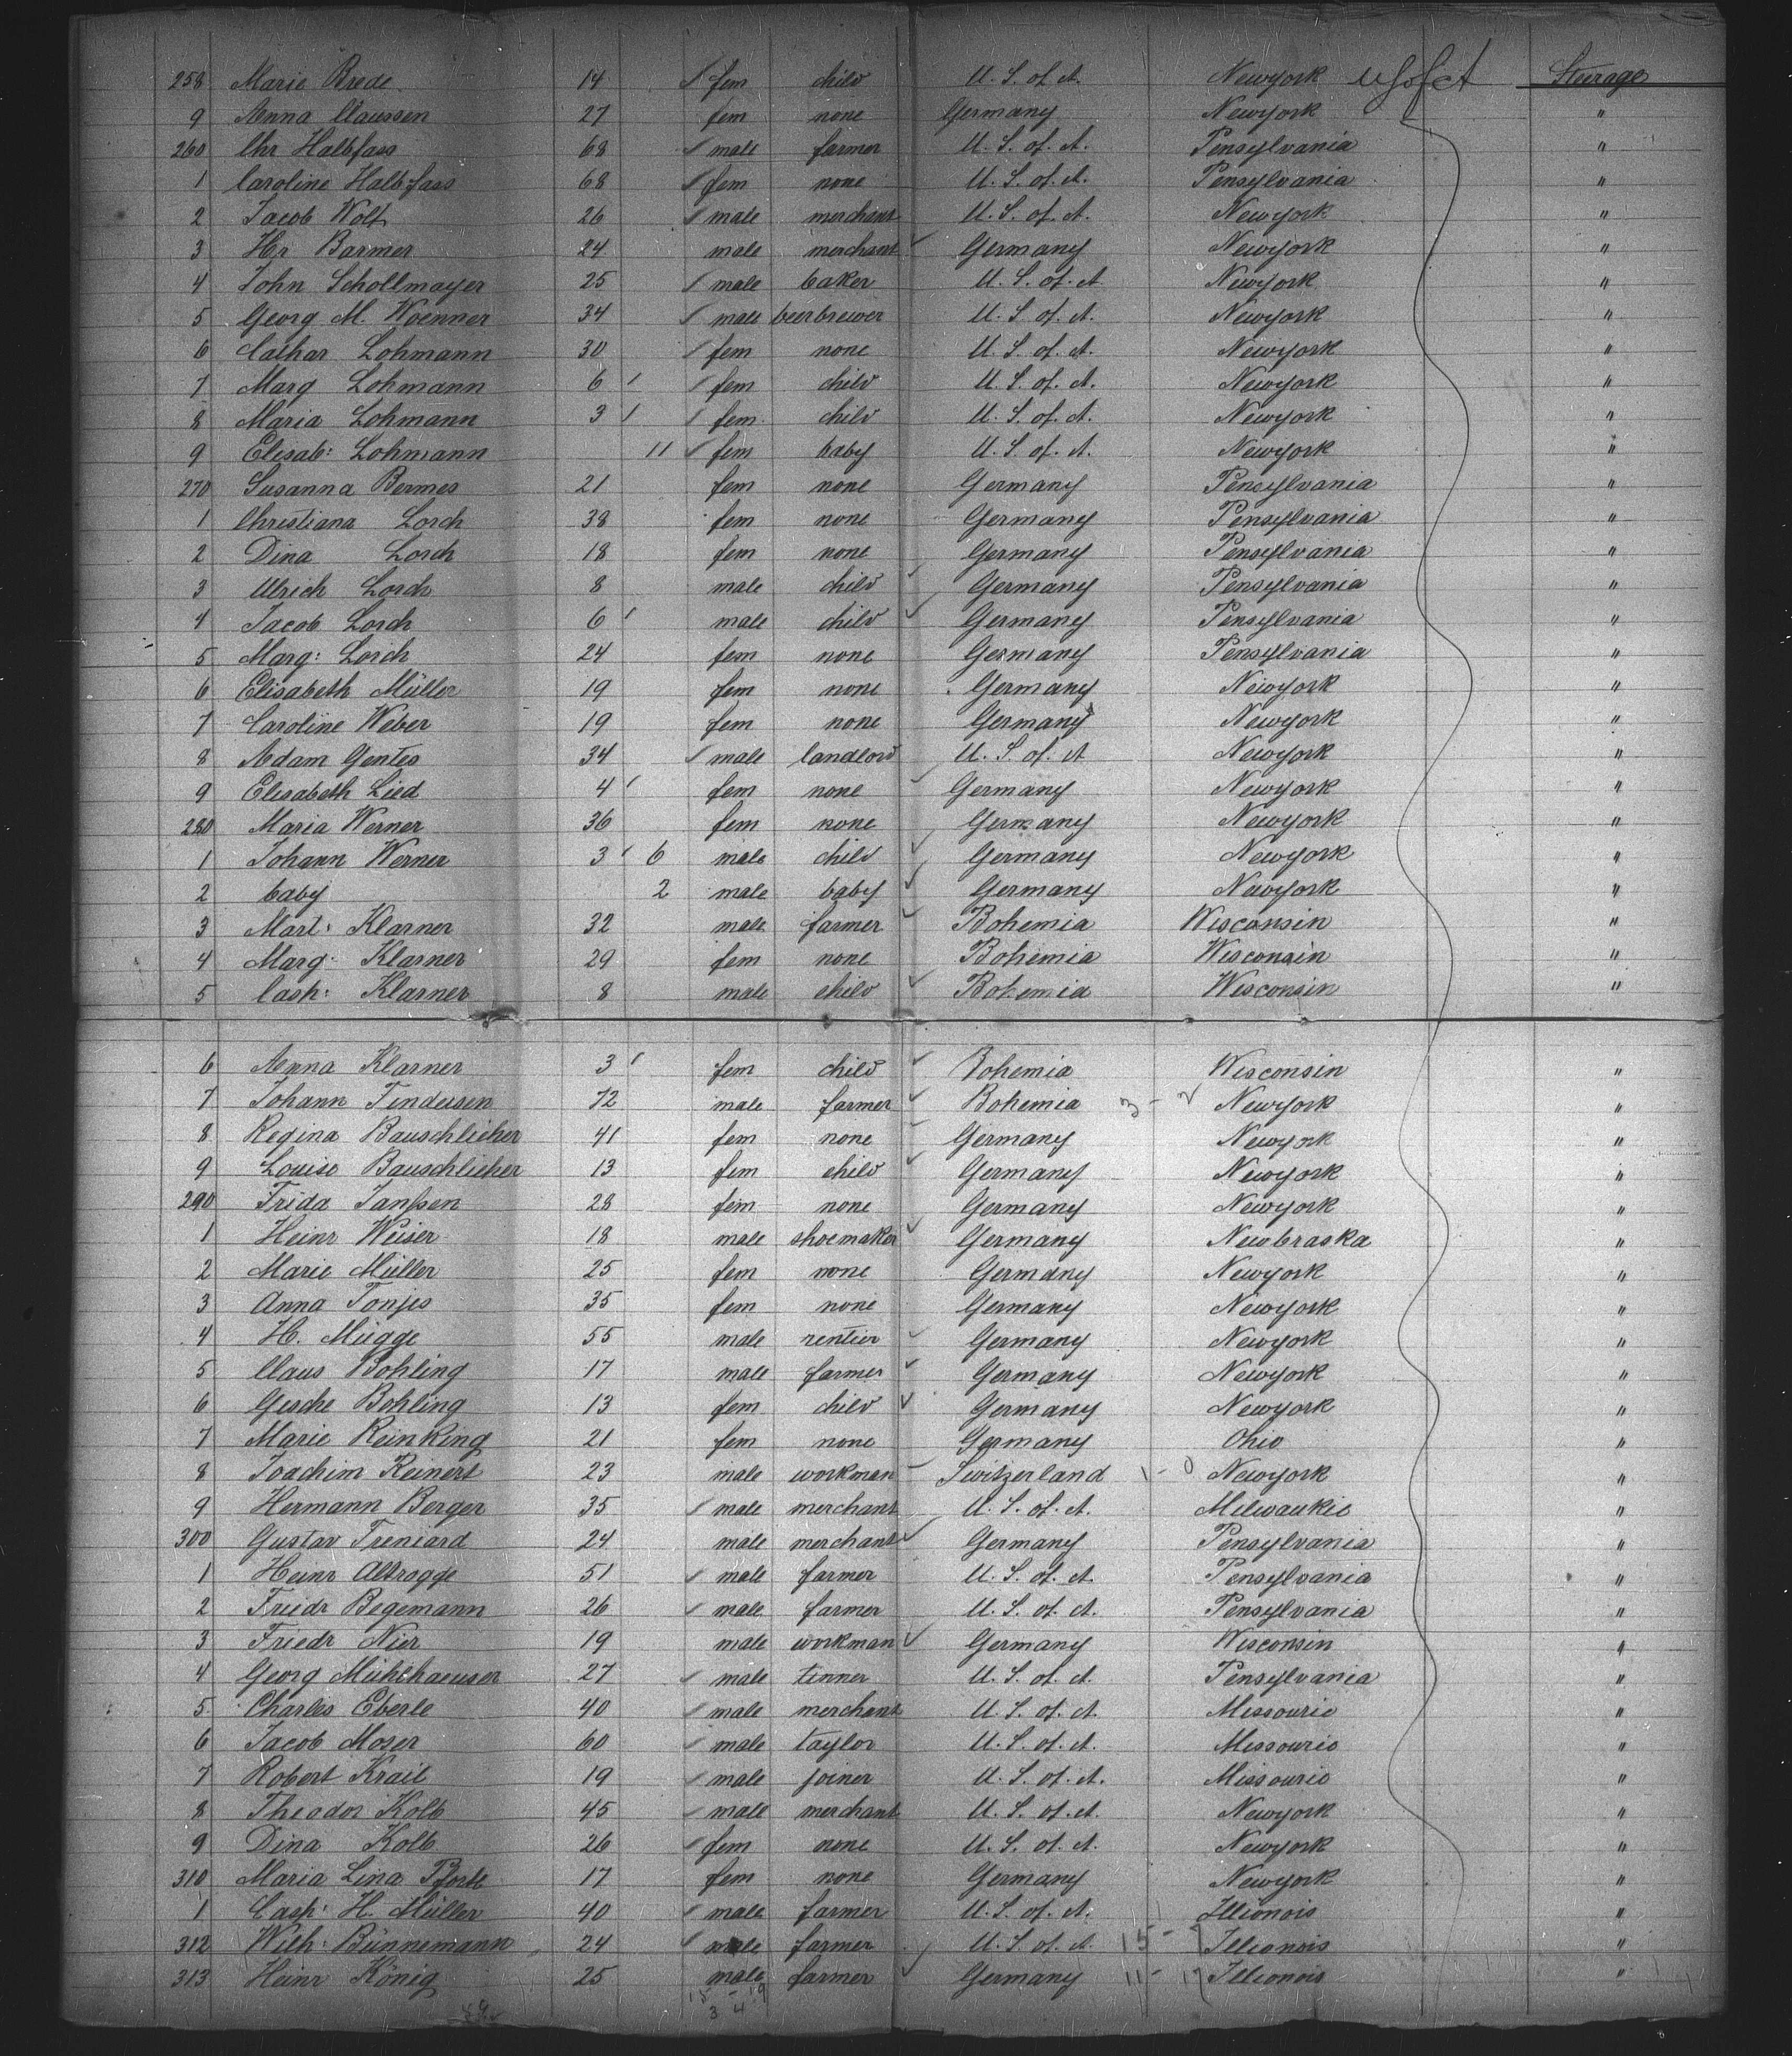 258 Marie Brede 14 fem child U. S. of A. Newyork U S of A Steerage
9 Anna Claussen 27 fem none Germany Newyork "
260 Chr Halbfass 68 male farmer U. S. of. A. Pensylvania "
1 Caroline Halbfass 68 fem none U. S. of. A. Pensylvania "
2 Jacob Wolf 26 male merchant U. S. of. A. Newyork "
3 Hr Barmer 24 male merchant Germany Newyork "
4 John Schollmayer 25 male baker U. S. of. A Newyork "
5 Georg M. Woenner 34 male beerbrewer U. S. of. A. Newyork "
6 Cathar Lohmann 30 fem none U. S. of. A. Newyork "
7 Marg Lohmann 6 fem child U. S. of. A. Newyork "
8 Maria Lohmann 3 fem child U. S. of. A. Newyork "
9 Elisab: Lohmann 11 fem baby U. S. of. A. Newyork "
270 Susanna Bermes 21 fem none Germany Pensylvania "
1 Christiana Lorch 38 fem none Germany Pensylvania "
2 Dina Lorch 18 fem none Germany Pensylvania "
3 Ulrich Lorch 8 male child Germany Pensylvania "
4 Jacob Lorch 6 male child Germany Pensylvania "
5 Marg: Lorch 24 fem none Germany Pensylvania "
6 Elisabeth Müller 19 fem none Germany Newyork "
7 Caroline Weber 19 fem none Germany Newyork "
8 Adam Gentes 34 male landlord U. S. of. A Newyork "
9 Elisabeth Lied 4 fem none Germany Newyork "
280 Maria Werner 36 fem none Germany Newyork "
1 Johann Werner 3 6 male child Germany Newyork "
2 baby 2 male baby Germany Newyork "
3 Mart: Klarner 32 male farmer Bohemia Wisconsin "
4 Marg: Klarner 29 fem none Bohemia Wisconsin "
5 Casp: Klarner 8 male child Bohemia Wisconsin "
6 Anna Klarner 3 fem child Bohemia Wisconsin "
7 Johann Findeisen 72 male farmer Bohemia 3 - 2 Newyork "
8 Regina Bauschlicher 41 fem none Germany Newyork "
9 Louise Bauschlicher 13 fem child Germany Newyork "
290 Frida Janssen 28 fem none Germany Newyork "
1 Heinr Weiser 18 male shoemaker Germany Newbraska "
2 Marie Müller 25 fem none Germany Newyork "
3 Anna Tonjes 35 fem none Germany Newyork "
4 H. Mügge 55 male rentier Germany Newyork "
5 Claus Bohling 17 male farmer Germany Newyork "
6 Gesche Bohling 13 fem child Germany Newyork "
7 Marie Reinking 21 fem none Germany Ohio "
8 Joachim Reinert 23 male workman Switzerland 1 - 0 Newyork "
9 Hermann Berger 35 male merchant U. S. of. A. Milwaukie "
300 Gustav Treniard 24 male merchant Germany Pensylvania "
1 Heinr Altrogge 51 male farmer U. S. of. A. Pensylvania "
2 Friedr Begemann 26 male farmer U. S. of. A. Pensylvania "
3 Friedr Nier 19 male workman Germany Wisconsin "
4 Georg Mühlhaeuser 27 male tinner U. S. of. A. Pensylvania "
5 Charles Eberle 40 male merchant U. S. of. A Missourie "
6 Jacob Moser 60 male taylor U. S. of. A. Missourie "
7 Robert Krail 19 male joiner U. S. of. A. Missourie "
8 Theodor Kolb 45 male merchant U. S. of. A. Newyork "
9 Dina Kolb 26 fem none U. S. of. A. Newyork "
310 Maria Lina 17 fem none Germany Newyork "
1 Casp: H. Müller 40 male farmer U. S. of. A. Illionois "
312 Wilh: Bünnemann 24 male farmer U. S. of. A. 15 - 9 Illionois "
313 Heinr König 25 male farmer Germany 11 - 17 Illionois "
15 - 19
3 4